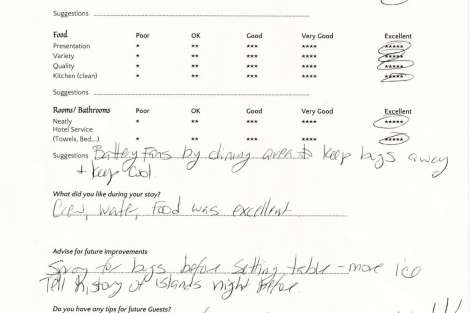 Suggestions
Food Poor OK Good Very Good Excellent
Presentation * ** *** **** *****
Variety * ** *** **** *****
Quality * ** *** **** *****
Kitchen (clean) * ** *** **** *****
Suggestions
Rooms/ Bathrooms Poor OK Good Very Good Excellent
Neatly * ** *** **** *****
Hotel Service
(Towels, Bed...) * ** *** **** *****
Suggestions Battery Fans by dining area to keep bugs away
+ keep cool.
What did you like during your stay?
Crew, water, Food was excellent
Advise for future improvements
Spray for bugs before setting table - more ice
Tell history of islands night before.
Do you have any tips for future Guests?